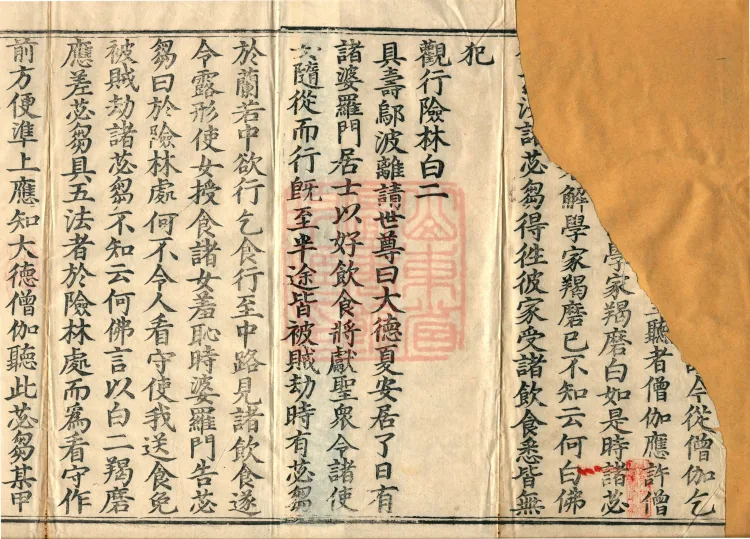 令從僧伽乞
聽者僧伽應許僧
學家羯磨白如是時諸苾
解學家羯磨已不知云何白佛
法諸苾芻得徃彼家受諸飲食悉皆無
犯
觀行險林白二
具壽鄔波離請世尊曰大德夏安居了日有
諸婆羅門居士以好飲食將獻聖衆令諸使
女隨從而行旣至半途皆被賊劫時有苾芻
於蘭若中欲行乞食行至中路見諸飲食遂
令露形使女授食諸女羞恥時婆羅門告苾
芻曰於險林處何不令人看守使我送食免
被賊劫諸苾芻不知云何佛言以白二羯磨
應差苾芻具五法者於險林處而爲看守作
前方便準上應知大德僧伽聽此苾芻某甲